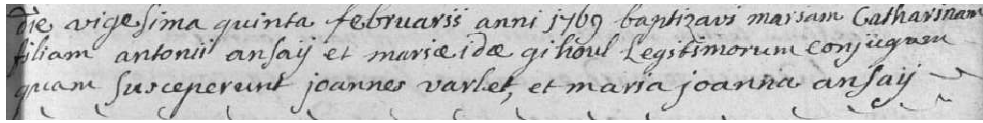 die vigesima quinta februarii anni 1769 baptizavi mariam Catharinam
filiam antonii ansaij et mariæ idæ gihoul Legitimorum conjugum
quam susceperunt joannes varlet, et maria joanna ansaij